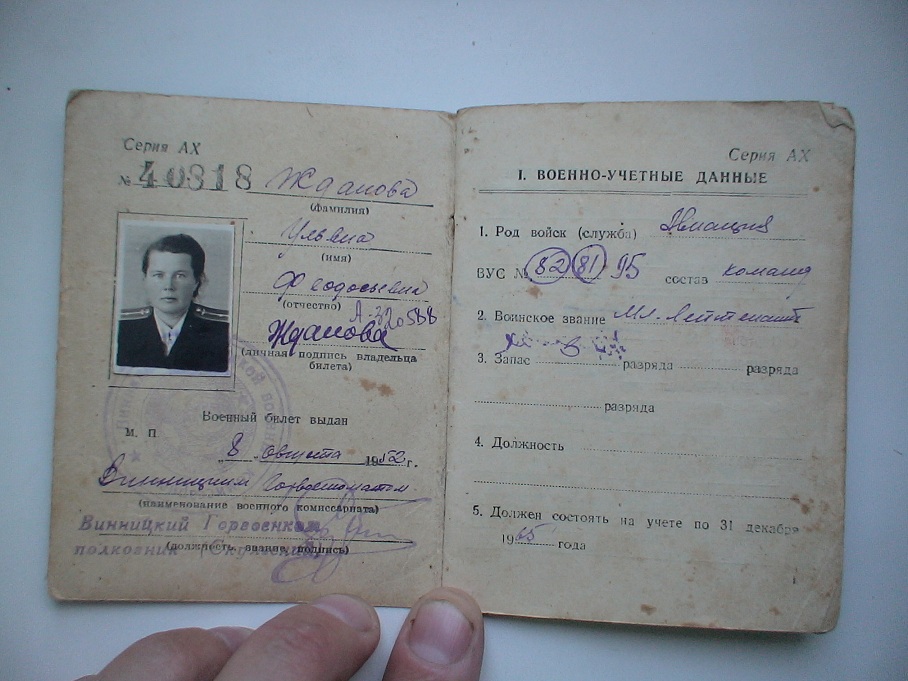 Серия АХ
№ 40818 Жданова
(фамилия)
Ульяна
(имя)
Феодосьевна
(отчество) А-320588
Жданова
(личная подпись владельца
билета)
Военный билет выдан
М. П.
8 августа 1952 г.
Винницким Горвоенкоматом
(наименование военного комиссариата)
Винницкий Горвоенком
полковник
(должность, звание, подпись)
Серия АХ
I. ВОЕННО-УЧЕТНЫЕ ДАННЫЕ
1. Род войск (служба) Авиация
ВУС № 82 81 95 состав команд
2. Воинское звание Мл. Лейтенант
3. Запас разряда разряда
разряда
4. Должность
5. Должен состоять на учете по 31 декабря
1965 года